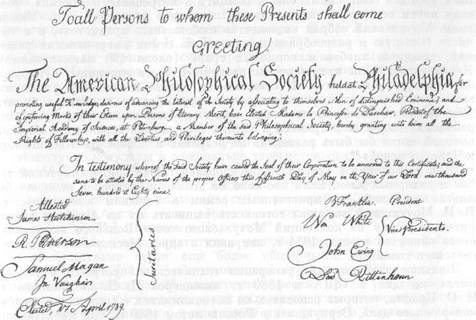 To all Persons to whom these Presents shall come
Greeting
The American Philosophical Society held at Philadelphia, for
promoting useful Knowledge, desirous of advancing the Interest of the Society by associating to themselves Men of distinguished Eminence, and
of conferring Marks of their Esteem upon Persons of literary Merit, have Elected Madame la Princesse de Daschaw, President of the
Imperial Academy of Sciences, at Petersburg, a Member of the said Philosophical Society, hereby granting unto him all the
Rights of Fellowship, with all the Liberties and Privileges thereunto belonging.
In testimony whereof the said Society have caused the Seal of their Corporation to be annexed to this Certificate, and the
same to be attested by the Names of the proper Officers this fifteenth Day of May in the Year of our Lord one thousand
seven hundred and Eighty nine.
Attested
James Hutchinson
R. Patterson
Samuel Magan
Jn. Vaughan
Secretaries
Elected, 17 April 1789.
B Franklin. President
Wm White
John Ewing
David Rittenhouse
Vice Presidents.